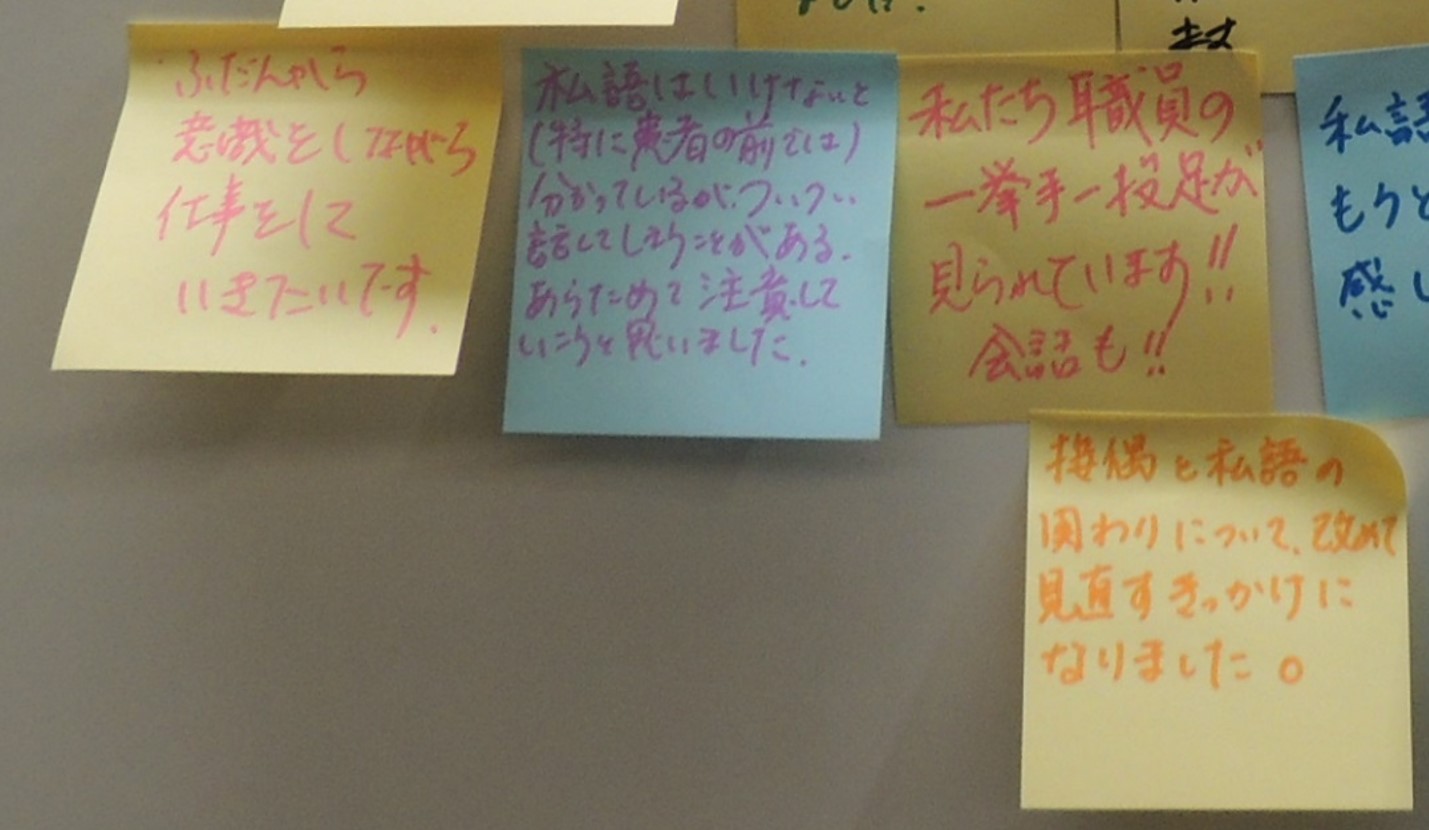 ふだんから
意識をしながら
仕事をして
いきたいです.
私語はいけないと
(特に患者の前では)
分かっているが、ついつい
話してしまうことがある.
あらためて注意して
いこうと思いました.
私たち職員の
一挙手一投足が
見られています!!
会話も!!
私語
もうと
感し
接偶と私語の
関わりについて、改めて
見直すきっかけに
なりました。